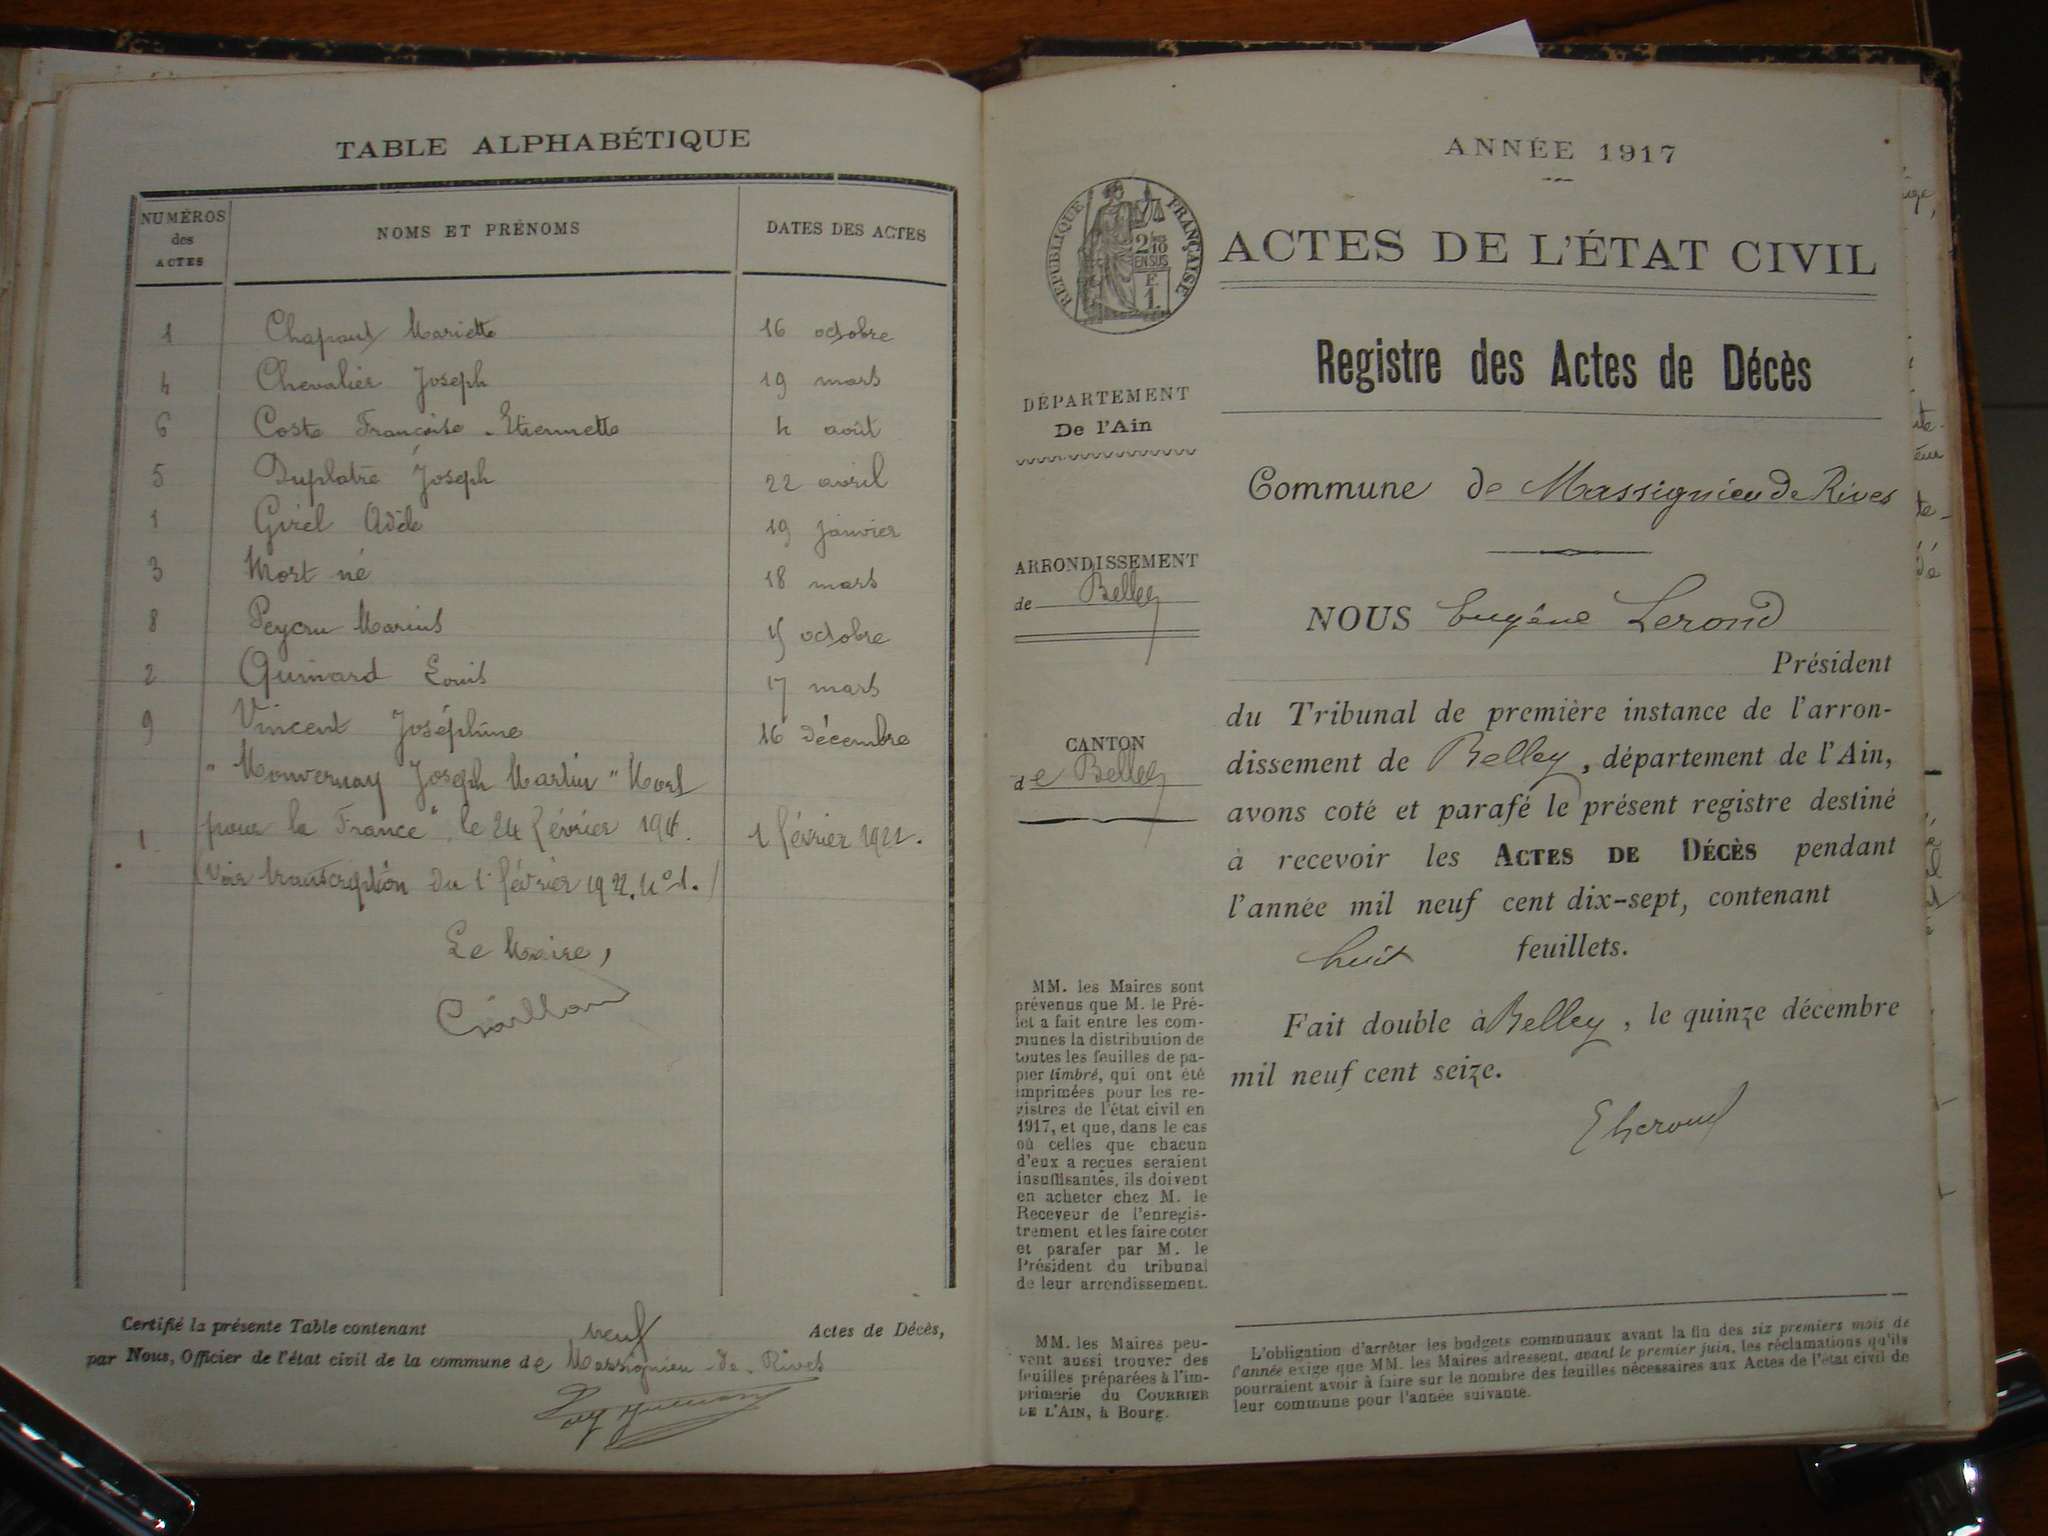 TABLE ALPHABÉTIQUE
NUMÉROS des ACTES NOMS ET PRÉNOMS DATES DES ACTES
1 Mariette 16 octobre
4 Chevalier Joseph 19 mars
6 Coste Françoise-Etiennette 4 août
5 Duplatre Joseph 22 avril
1 Girel Adèle 19 janvier
3 Mort né 18 mars
8 Peycru Marius 5 octobre
2 Guinard Louis 17 mars
9 Vincent Joséphine 16 décembre
" Monvernay Joseph Martin " Mort
pour la France", le 24 février
1 1 février 1922.
(Voir transcription du 1 février 1922. N°1.)
Le Maire,
Certifié la présente Table contenant neuf Actes de Décès,
par Nous, Officier de l'état civil de la commune de Massignieu-de-Rives
ANNÉE 1917
RÉPUBLIQUE FRANÇAISE
2/10
EN SUS
F
1.
ACTES DE L'ÉTAT CIVIL
Registre des Actes de Décès
DÉPARTEMENT
De l'Ain
Commune de Massignieu de Rives
ARRONDISSEMENT
de Belley
NOUS Eugène Lerond
Président
du Tribunal de première instance de l'arron-
dissement de Belley, département de l'Ain,
avons coté et parafé le présent registre destiné
à recevoir les ACTES DE DÉCÈS pendant
l'année mil neuf cent dix-sept, contenant
huit feuillets.
Fait double à Belley, le quinze décembre
mil neuf cent seize.
E Lerond
CANTON
de Belley
MM. les Maires sont
prévenus que M. le Pré-
fet a fait entre les com-
munes la distribution de
toutes les feuilles de pa-
pier timbré, qui ont été
imprimées pour les re-
gistres de l'état civil en
1917, et que, dans le cas
où celles que chacun
d'eux a reçues seraient
insuffisantes, ils doivent
en acheter chez M. le
Receveur de l'enregis-
trement et les faire coter
et parafer par M. le
Président du tribunal
de leur arrondissement.
MM. les Maires peu-
vent aussi trouver des
feuilles préparées à l'im-
primerie du COURRIER
DE L'AIN, à Bourg.
L'obligation d'arrêter les budgets communaux avant la fin des six premiers mois de
l'année exige que MM. les Maires adressent, avant le premier juin, les réclamations qu'ils
pourraient avoir à faire sur le nombre des feuilles nécessaires aux Actes de l'état civil de
leur commune pour l'année suivante.